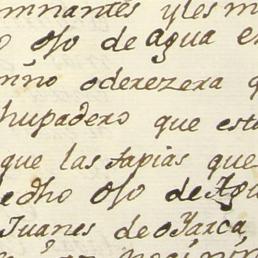 mnantes y les m
o ojo de agua e
mño oderezera q
hupadero que esta
que las tapias que
edho ojo de Agu
Juanes de oyarca